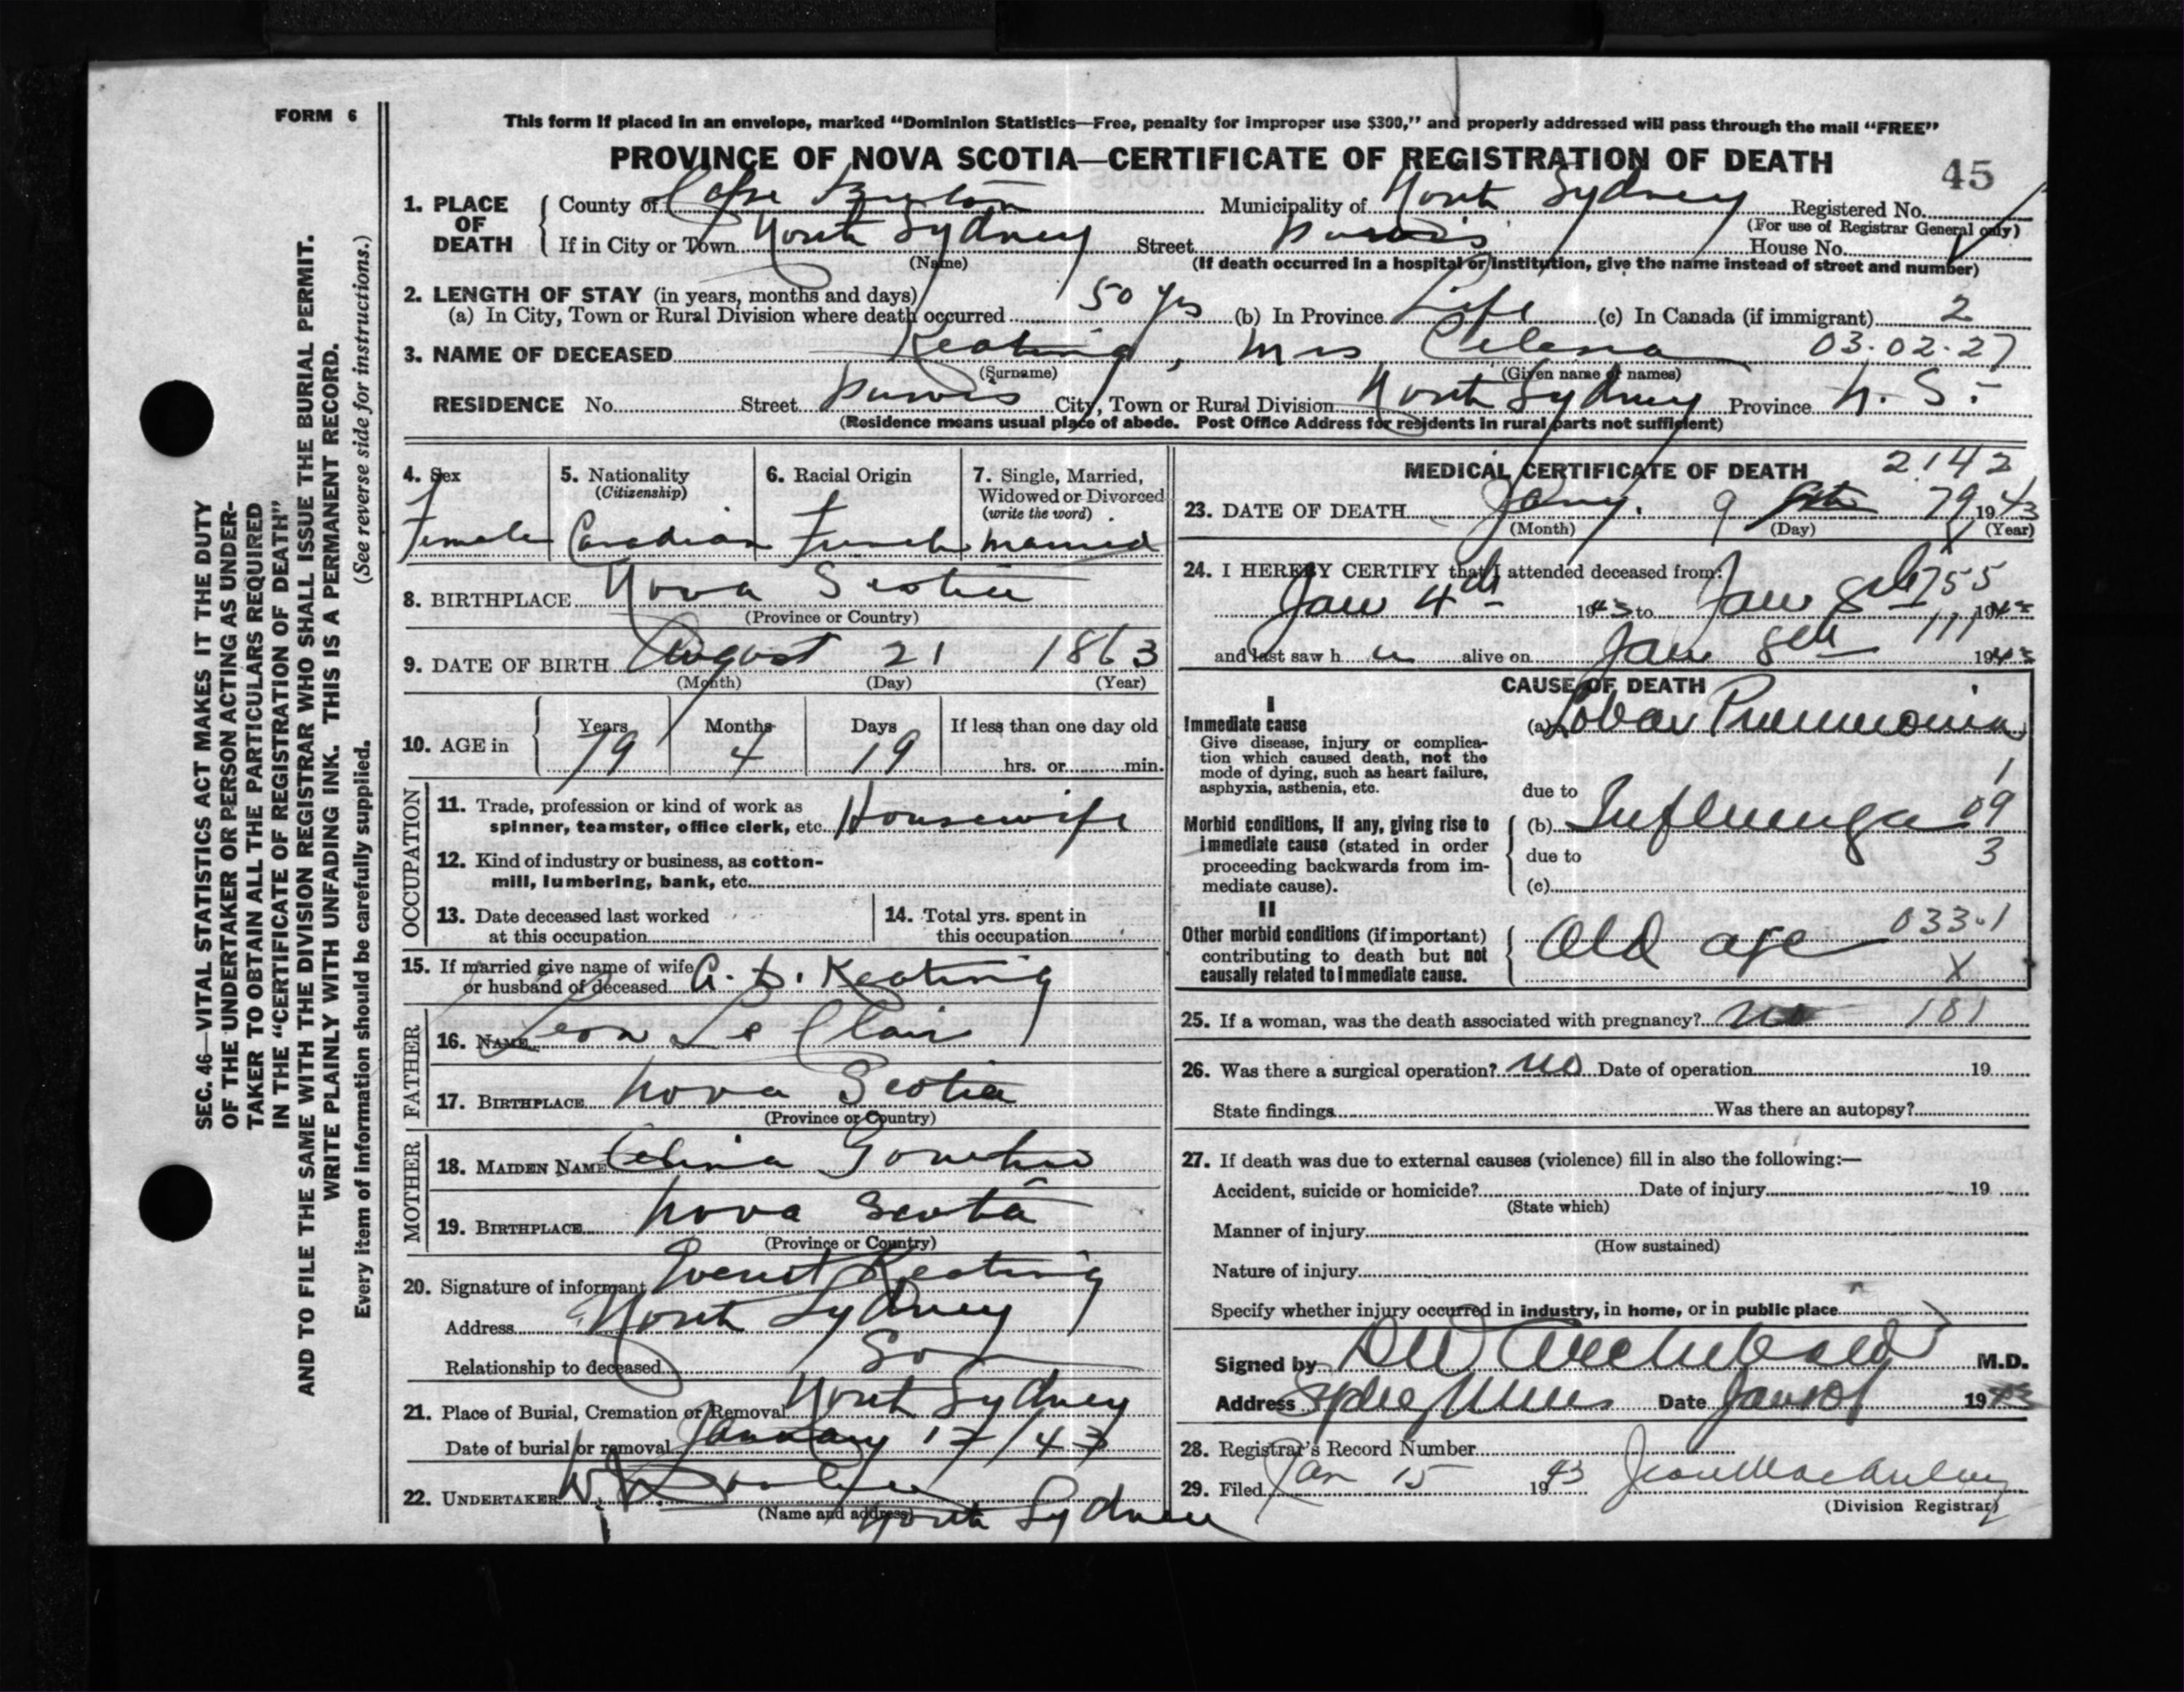 FORM 6
This form if placed in an envelope, marked “Dominion Statistics—Free, penalty for improper use $300,” and properly addressed will pass through the mail “FREE”
PROVINCE OF NOVA SCOTIA—CERTIFICATE OF REGISTRATION OF DEATH
45
1. PLACE OF DEATH
County of Cape Breton Municipality of North Sydney Registered No.
(For use of Registrar General only)
If in City or Town North Sydney Street Purves House No.
(Name) (If death occurred in a hospital or institution, give the name instead of street and number)
2. LENGTH OF STAY (in years, months and days)
(a) In City, Town or Rural Division where death occurred 50 yrs (b) In Province Life (c) In Canada (if immigrant) 2
3. NAME OF DECEASED Keating, Mrs Celena 03.02.27
(Surname) (Given name or names)
RESIDENCE No. Street Purves City, Town or Rural Division North Sydney Province N. S.
(Residence means usual place of abode. Post Office Address for residents in rural parts not sufficient)
4. Sex
Female
5. Nationality
(Citizenship)
Canadian
6. Racial Origin
French
7. Single, Married,
Widowed or Divorced
(write the word)
Married
8. BIRTHPLACE Nova Scotia
(Province or Country)
9. DATE OF BIRTH August 21 1863
(Month) (Day) (Year)
10. AGE in
Years Months Days If less than one day old
79 4 19 hrs. or min.
OCCUPATION
11. Trade, profession or kind of work as
spinner, teamster, office clerk, etc. Housewife
12. Kind of industry or business, as cotton-
mill, lumbering, bank, etc.
13. Date deceased last worked
at this occupation
14. Total yrs. spent in
this occupation
15. If married give name of wife
or husband of deceased A. D. Keating
FATHER
16. NAME Leon Le Clair
17. BIRTHPLACE Nova Scotia
(Province or Country)
MOTHER
18. MAIDEN NAME Celina
19. BIRTHPLACE Nova Scotia
(Province or Country)
20. Signature of informant Everet Keating
Address North Sydney
Relationship to deceased Son
21. Place of Burial, Cremation or Removal North Sydney
Date of burial or removal January 12/43
22. UNDERTAKER
(Name and address) North Sydney
MEDICAL CERTIFICATE OF DEATH 2142
23. DATE OF DEATH Jany. 9 79 1943
(Month) (Day) (Year)
24. I HEREBY CERTIFY that I attended deceased from: 755
Jan 4th 1943 to Jan 8th 1943
and last saw h er alive on Jan 8th 111 1943
CAUSE OF DEATH
I
Immediate cause
Give disease, injury or complica-
tion which caused death, not the
mode of dying, such as heart failure,
asphyxia, asthenia, etc.
(a) Lobar Pneumonia
1
due to
Morbid conditions, if any, giving rise to
immediate cause (stated in order
proceeding backwards from im-
mediate cause).
(b) Influenza 09
due to 3
(c)
II
Other morbid conditions (if important)
contributing to death but not
causally related to immediate cause.
033.1
Old age
X
25. If a woman, was the death associated with pregnancy? no 181
26. Was there a surgical operation? no Date of operation 19
State findings Was there an autopsy?
27. If death was due to external causes (violence) fill in also the following:—
Accident, suicide or homicide? Date of injury 19
(State which)
Manner of injury
(How sustained)
Nature of injury
Specify whether injury occurred in industry, in home, or in public place
Signed by DW Archibald M.D.
Address Sydney Mines Date Jan 1943
28. Registrar's Record Number
29. Filed Jan 15 1943 Jean MacAulay
(Division Registrar)
SEC. 46—VITAL STATISTICS ACT MAKES IT THE DUTY
OF THE UNDERTAKER OR PERSON ACTING AS UNDER-
TAKER TO OBTAIN ALL THE PARTICULARS REQUIRED
IN THE “CERTIFICATE OF REGISTRATION OF DEATH”
AND TO FILE THE SAME WITH THE DIVISION REGISTRAR WHO SHALL ISSUE THE BURIAL PERMIT.
WRITE PLAINLY WITH UNFADING INK. THIS IS A PERMANENT RECORD.
Every item of information should be carefully supplied. (See reverse side for instructions.)